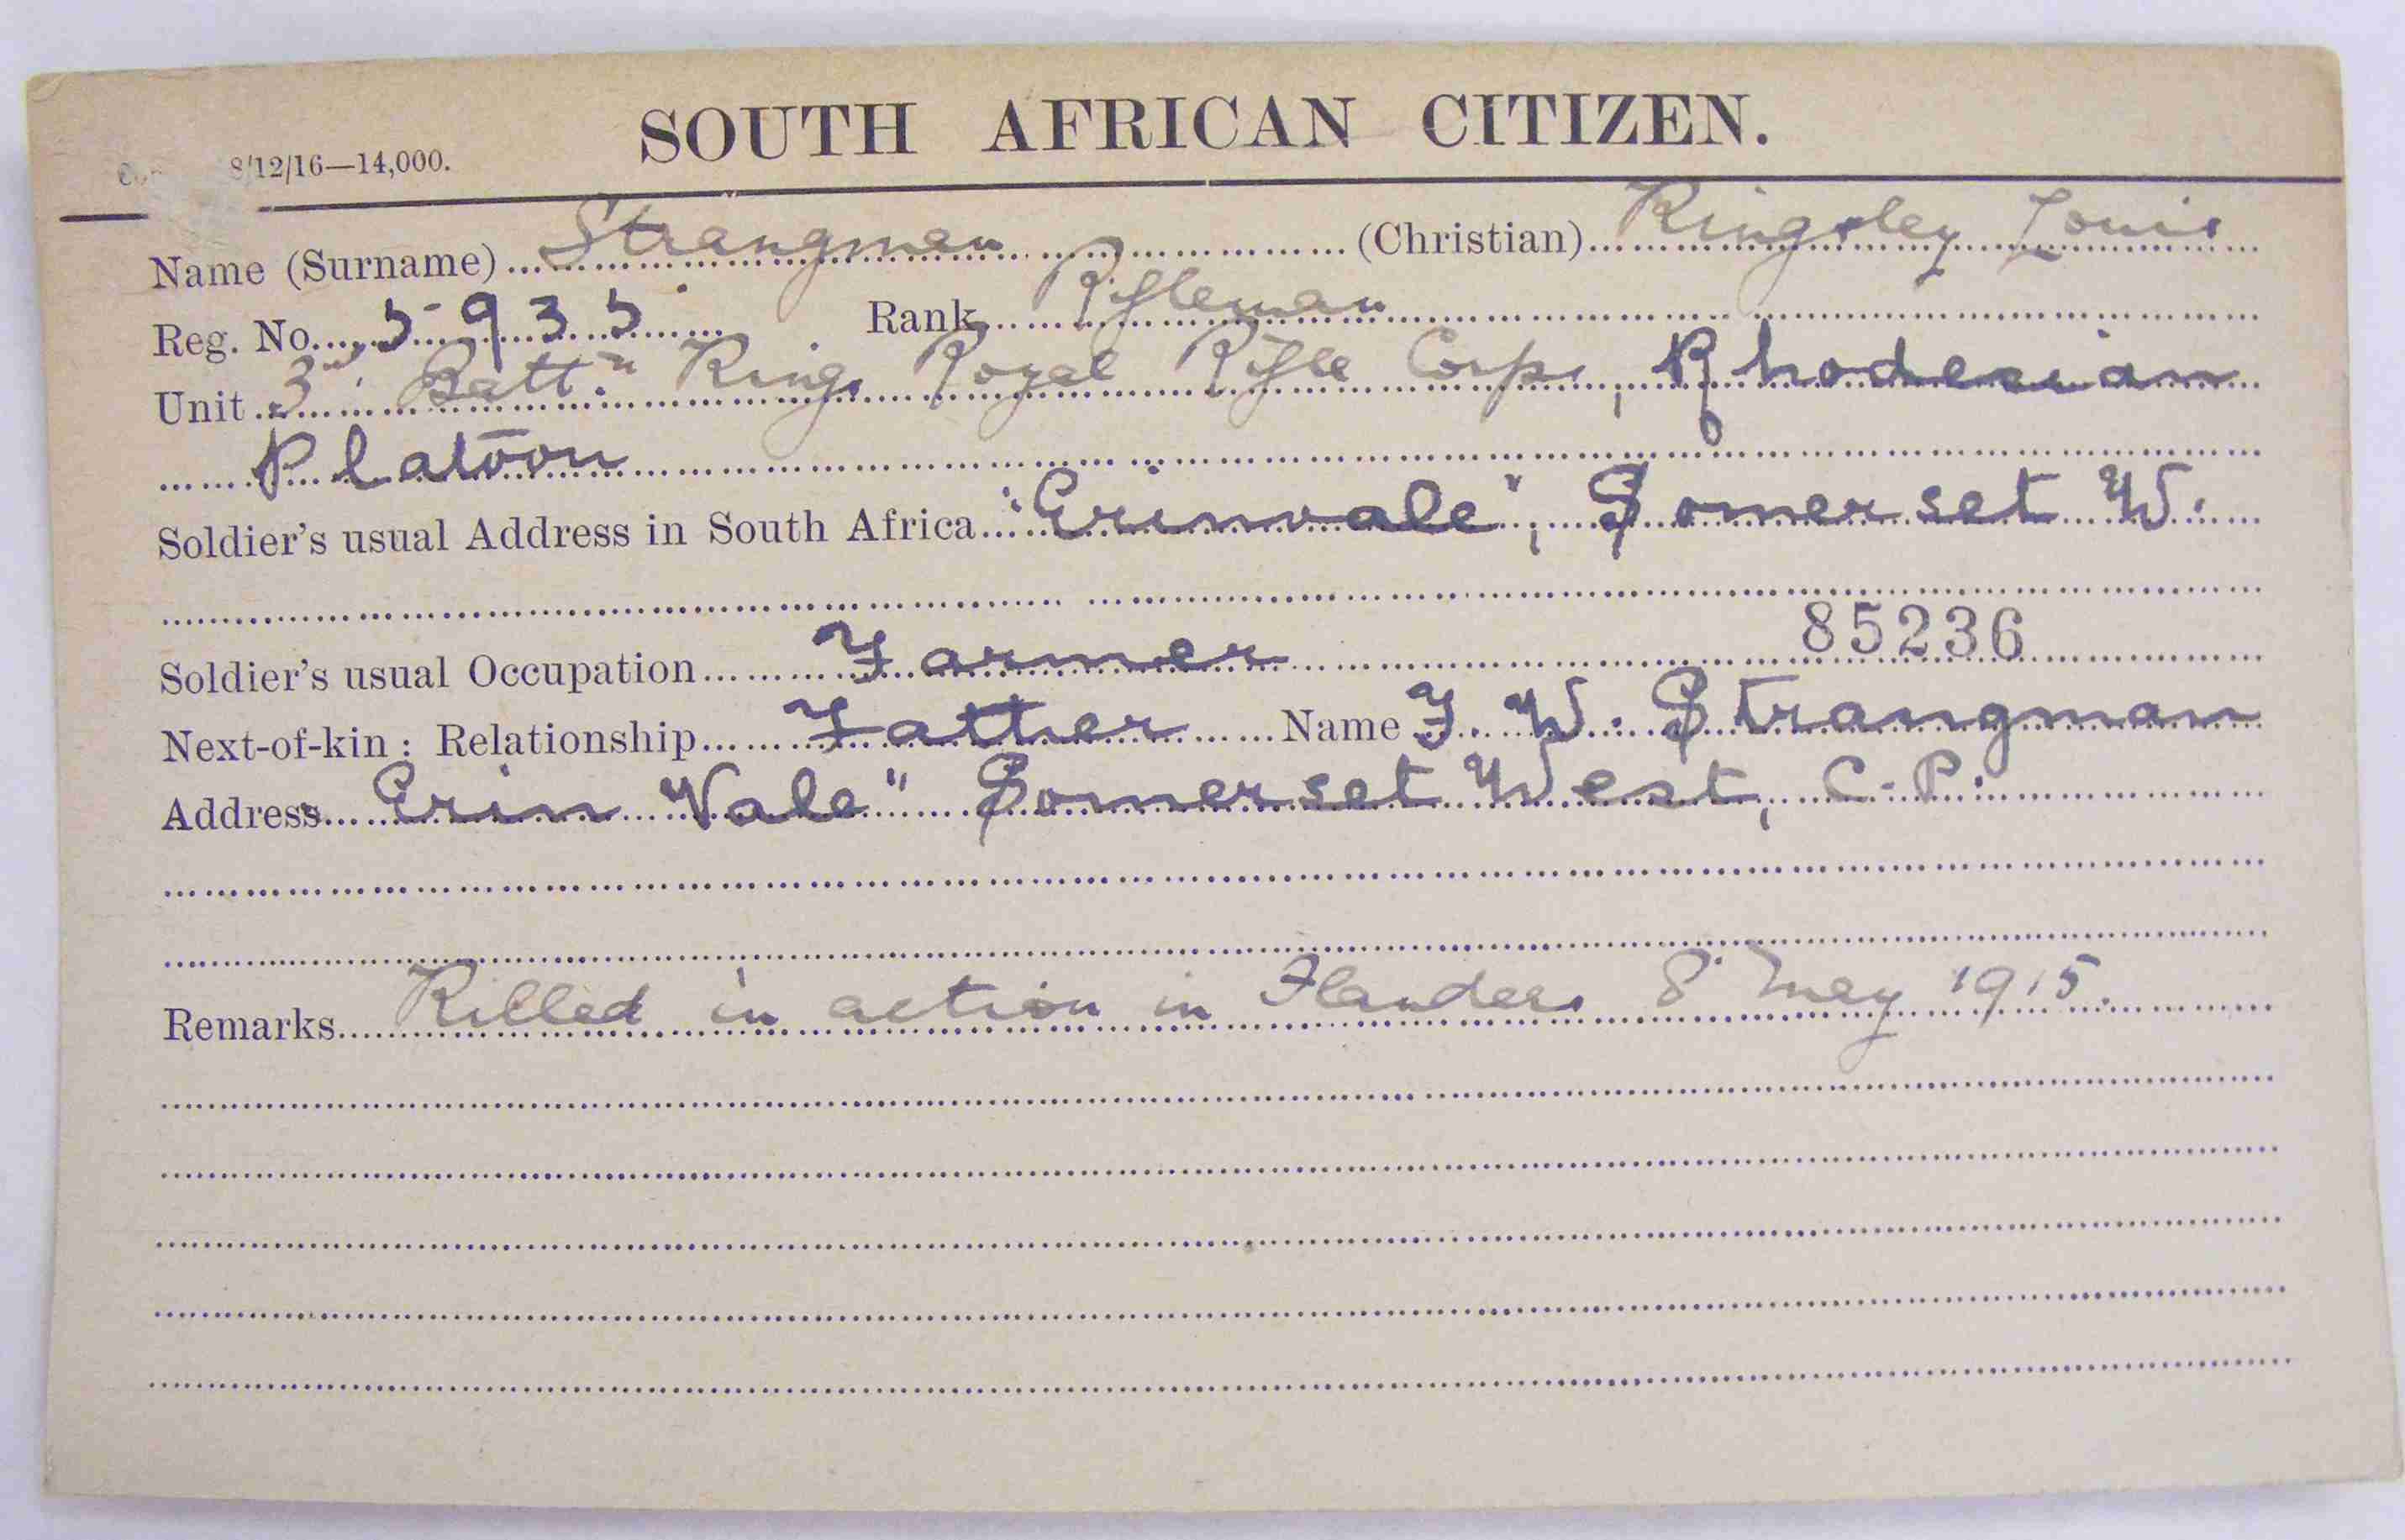 SOUTH AFRICAN CITIZEN.
8/12/16—14,000.
Name (Surname) Strangman (Christian) Kingsley Louis
Reg. No. 5935 Rank Rifleman
Unit 3rd Battn Kings Royal Rifle Corps, Rhodesian
Platoon
Soldier's usual Address in South Africa "Erinvale", Somerset W.
85236
Soldier's usual Occupation Farmer
Next-of-kin: Relationship Father Name F. W. Strangman
Address Erin Vale" Somerset West, C.P.
Remarks Killed in action in Flanders 8 May 1915.